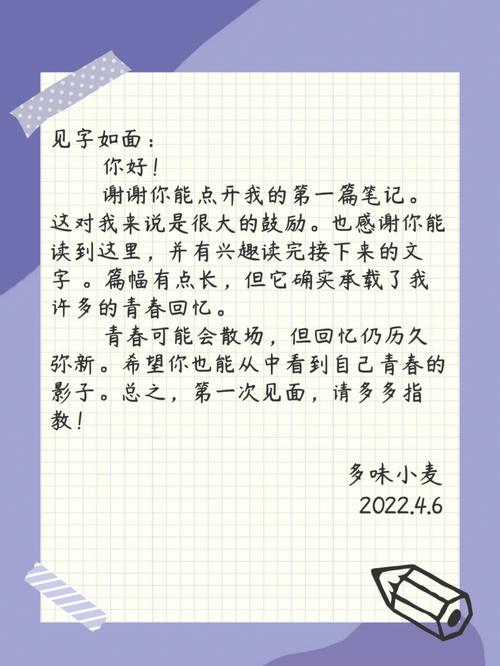 见字如面：
你好！
谢谢你能点开我的第一篇笔记。
这对我来说是很大的鼓励。也感谢你能
读到这里，并有兴趣读完接下来的文
字 。篇幅有点长，但它确实承载了我
许多的青春回忆。
青春可能会散场，但回忆仍历久
弥新。希望你也能从中看到自己青春的
影子。总之，第一次见面，请多多指
教！
多味小麦
2022.4.6